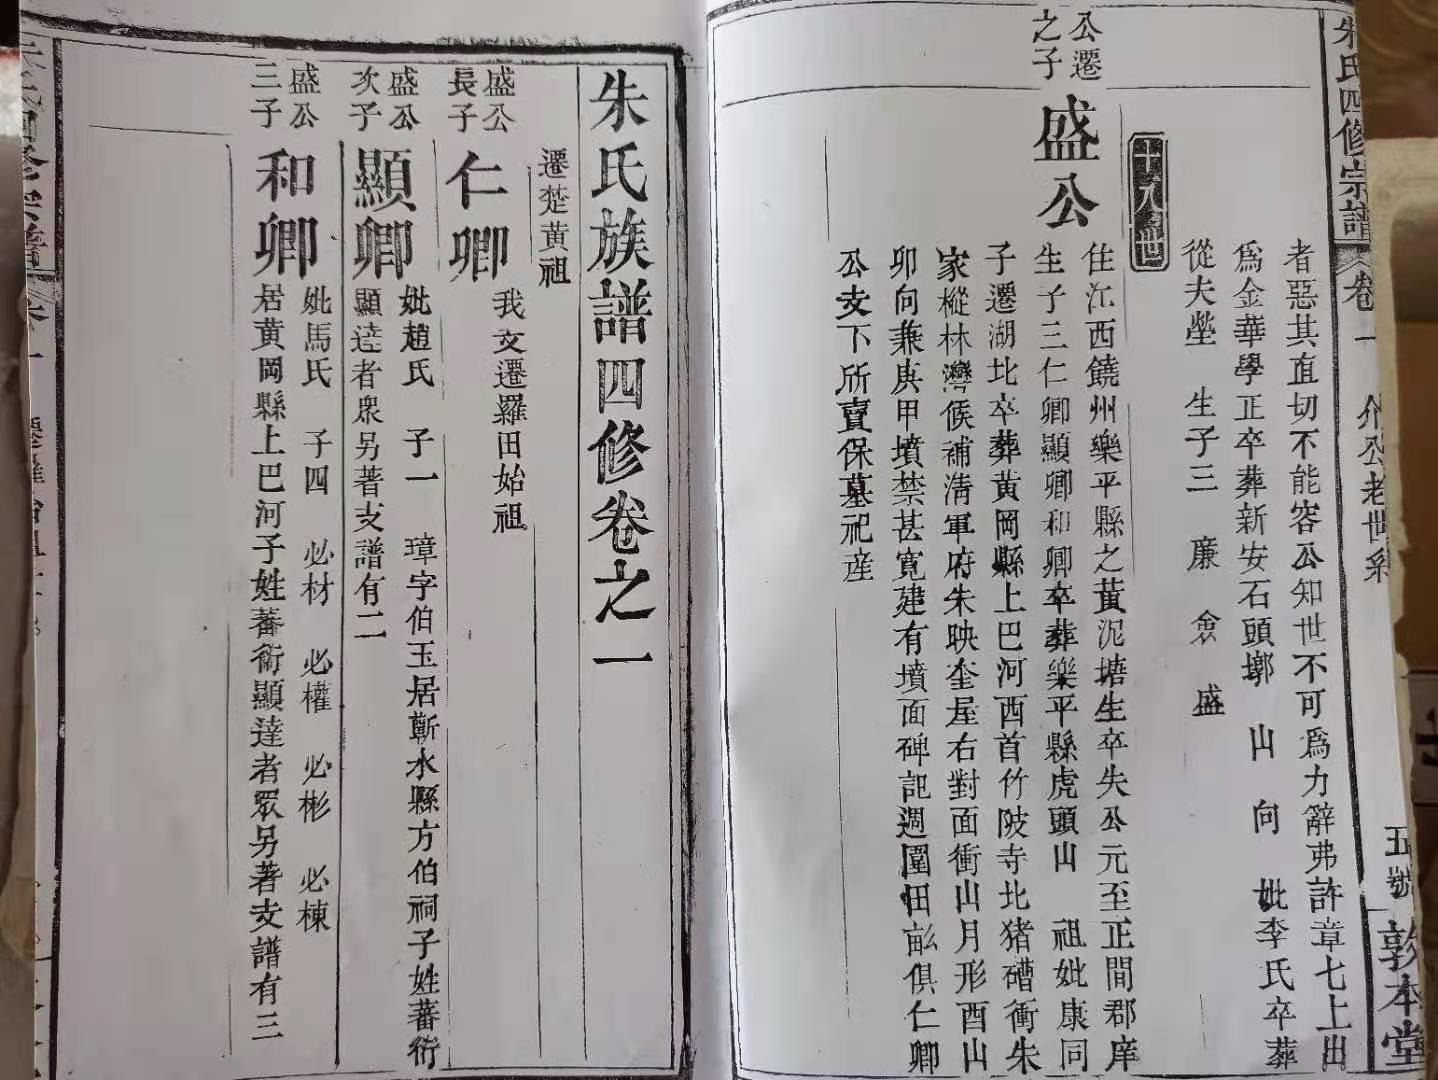 朱氏四修宗譜
卷一
介公老世系
五號
敦本堂
者惡其直切不能容公知世不可爲力辭弗許章七上出
爲金華學正卒葬新安石頭墎　山　向　妣李氏卒葬
從夫塋　生子三　廉　㑹　盛
十八世
公遷
之子
盛公
住江西饒州樂平縣之黃泥塘生卒失公元至正間郡庠
生子三仁卿顯卿和卿卒葬樂平縣虎頭山　祖妣康同
子遷湖北卒葬黃岡縣上巴河西首竹陂寺北猪磄衝朱
家樅林灣候補淸軍府朱映奎屋右對面衝山月形酉山
卯向兼庚甲墳禁甚寬建有墳面碑記週圍田畝俱仁卿
公支下所賣保墓祀產
朱氏族譜四修卷之一
遷楚黃祖
盛公
長子
仁卿
我支遷羅田始祖
盛公
次子
顯卿
妣趙氏　子一　璋字伯玉居蘄水縣方伯祠子姓蕃衍
顯達者眾另著支譜有二
盛公
三子
和卿
妣馬氏　子四　必材　必權　必彬　必棟
居黃岡縣上巴河子姓蕃衍顯達者眾另著支譜有三